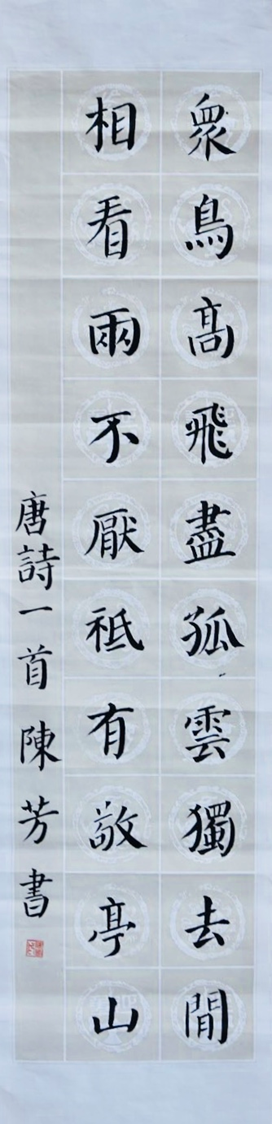 眾鳥高飛盡孤雲獨去閒
相看兩不厭祗有敬亭山
唐詩一首陳芳書